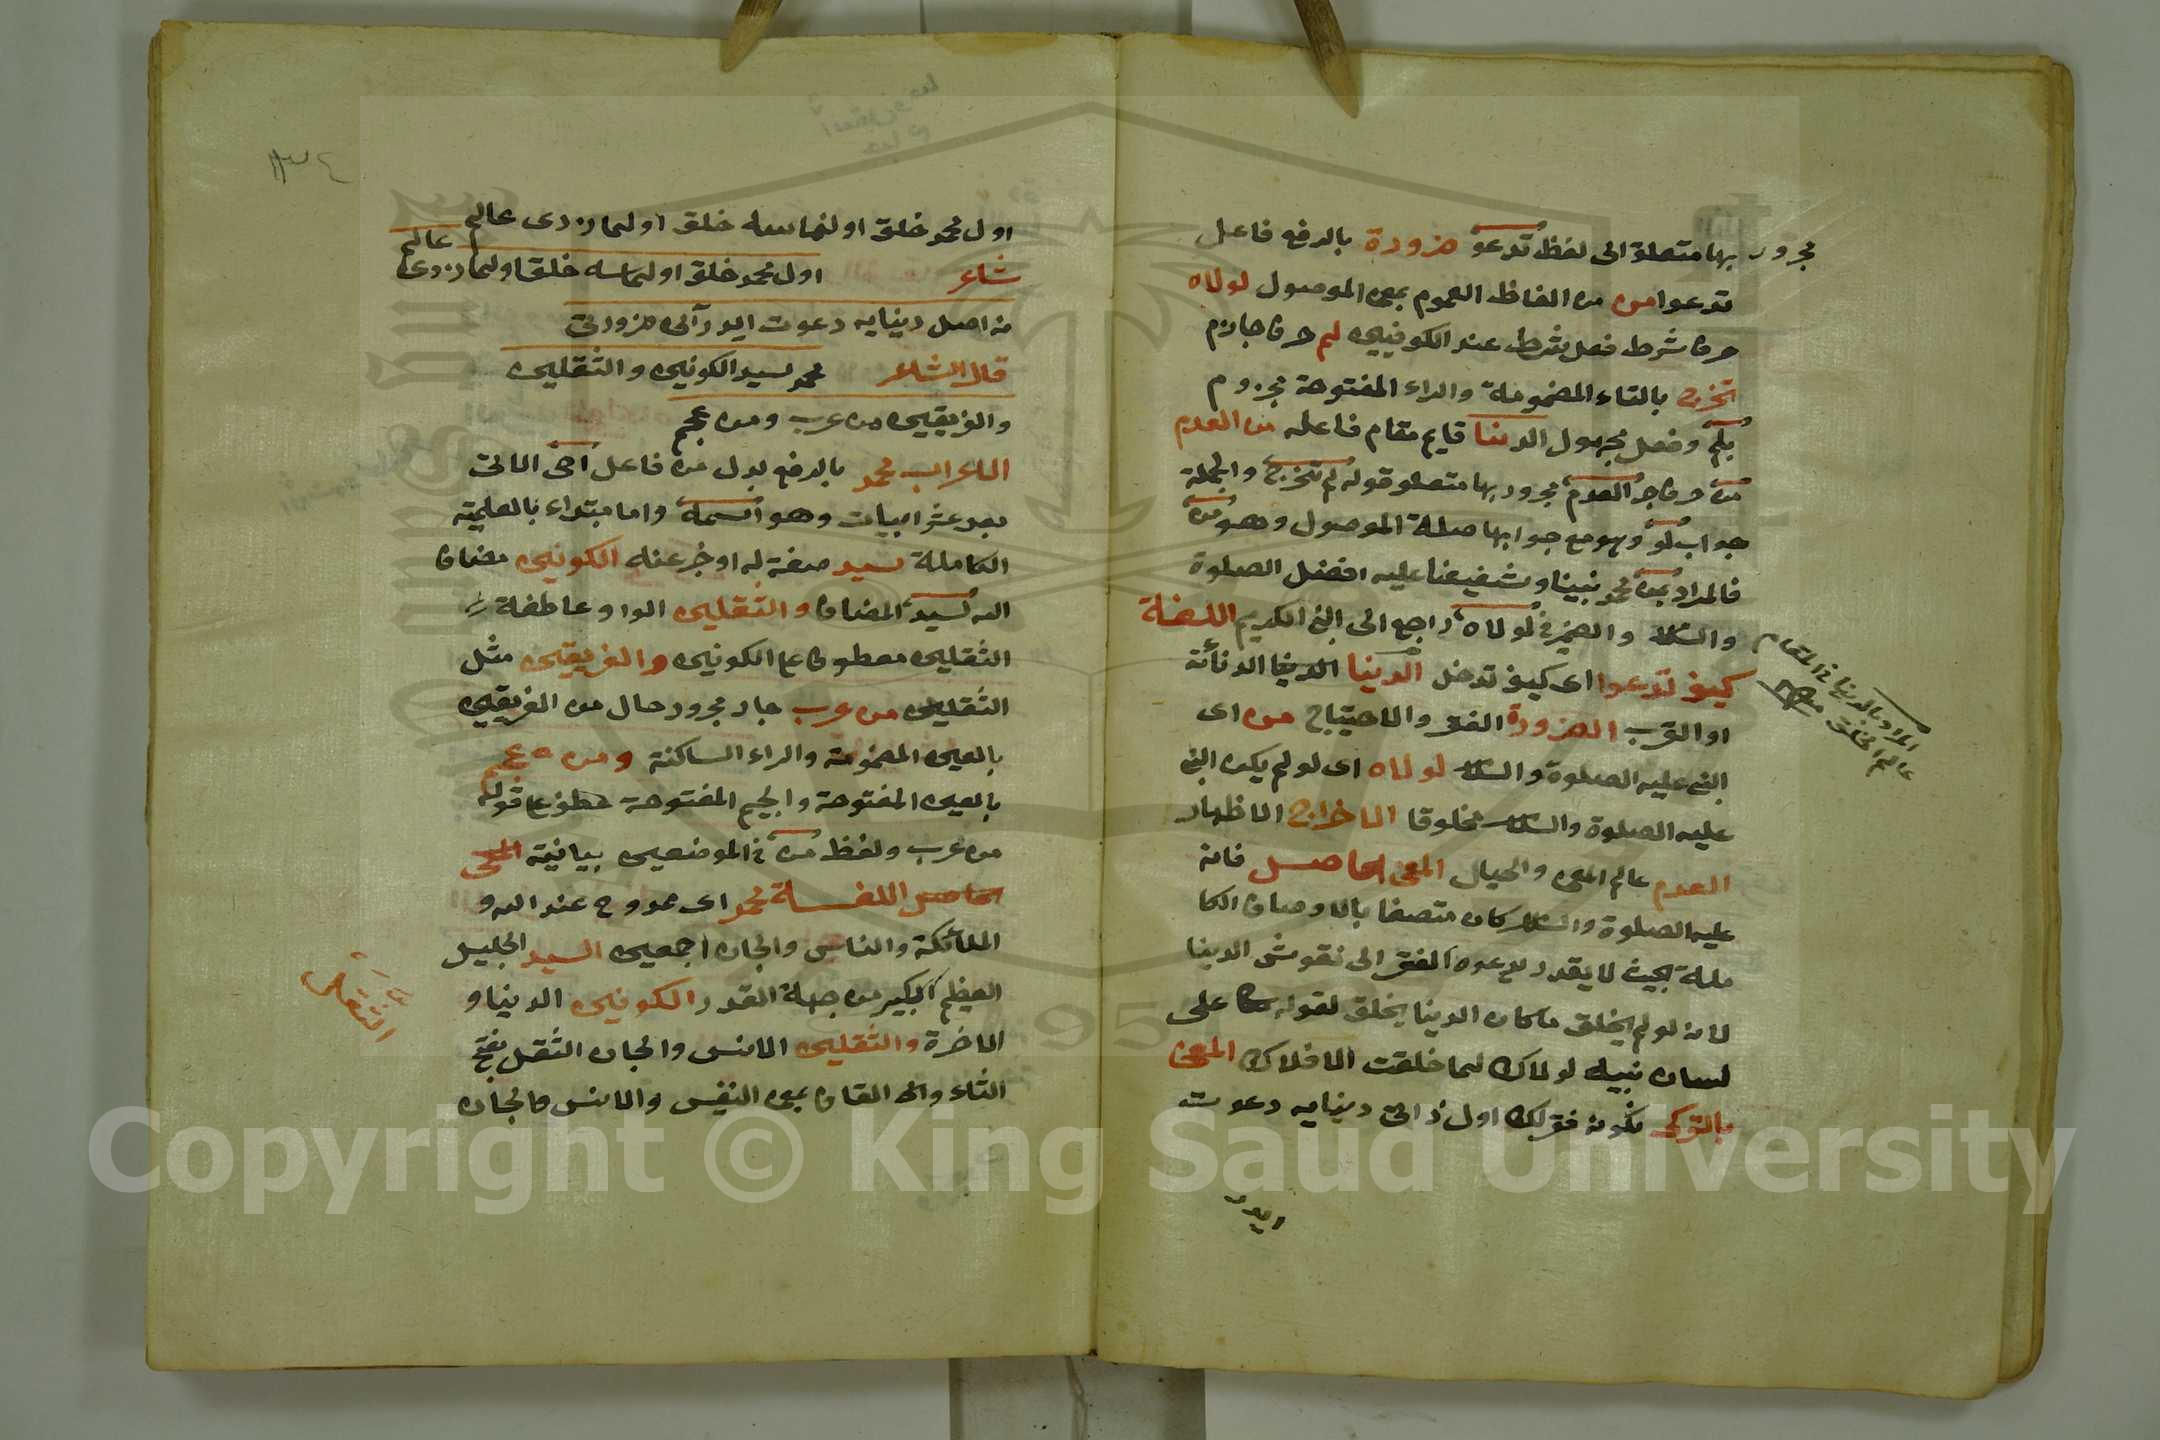 مجرور بها متعلق الى لفظ تدعو ضرورة بالرفع فاعل
تدعوا من من الفاظ العموم بمعنى الموصول لولاه
حرف شرط فعل شرط عند الكوفيين لم حرف جازم
تخرج بالتاء المضمومة والراء المفتوحة مجزوم
بلم وفعل مجهول الدنيا قايم مقام فاعله من العدم
من حرف جر العدم مجرور بها متعلق قوله لم تخرج والجملة
جواب لو وهو مع جوابها صلة الموصول وهو من
فالمراد بمن محمد نبينا وشفيعنا عليه افضل الصلوة
والسلام والضمير في لولاه راجع الى النبي الكريم اللغة
كيف تدعوا اى كيف تدخل الدنيا الدنيا الدنائة
او القرب الضرورة الفقر والاحتياج من اى
النبي عليه الصلوة والسلام لولاه اى لو لم يكن النبي
عليه الصلوة والسلام مخلوقا الاخراج الاظهار
العدم عالم المعنى والخيال المعنى الحاصل فانه
عليه الصلوة والسلام كان متصفا بالاوصاف الكا
ملة بحيث لا يقدر دعوة الفقر الى نقوش الدنيا
لانه لو لم يخلق ما كان الدنيا يخلق لقوله تعالى على
لسان نبيه لولاك لما خلقت الافلاك المعنى
بالتركى نكونه فقرلك اول ذاتى دنيايه دعوت
ايدر
المراد بالدنيا في المقام
عالم الخلق منه
١٣٤
اول محمد خلق اولنماسه خلق اولمازدى عالم
شاعر اول محمد خلق اولنماسه خلق اولمازدى عالم
نه اصل دنيايه دعوت ايدر آنى ضرورتى
قال الشاعر محمد سيد الكونين والثقلين
والفريقين من عرب ومن عجم
الاعراب محمد بالرفع بدل من فاعل احى الاتى
بعد عشر ابيات وهو اسمه واما مبتداء بالعلمية
الكاملة سيد صفة له او خبر عنه الكونين مضاف
اليه لسيد المضاف والثقلين الواو عاطفة
الثقلين معطوف على الكونين والفريقين مثل
الثقلين من عرب جار مجرور حال من الفريقين
بالعين المضمومة والراء الساكنة ومن عجم
بالعين المفتوحة والجيم المفتوحة عطف على قوله
من عرب ولفظ من في الموضعين بيانية المعنى
الحاصل اللغة محمد اى ممدوح عند الله و
الملائكة والناس والجان اجمعين السيد الجليل
العظيم الكبير من جهة القدر الكونين الدنيا و
الاخرة والثقلين الانس والجان الثقل بفتح
الثاء والقاف بمعنى النفيس والانس والجان